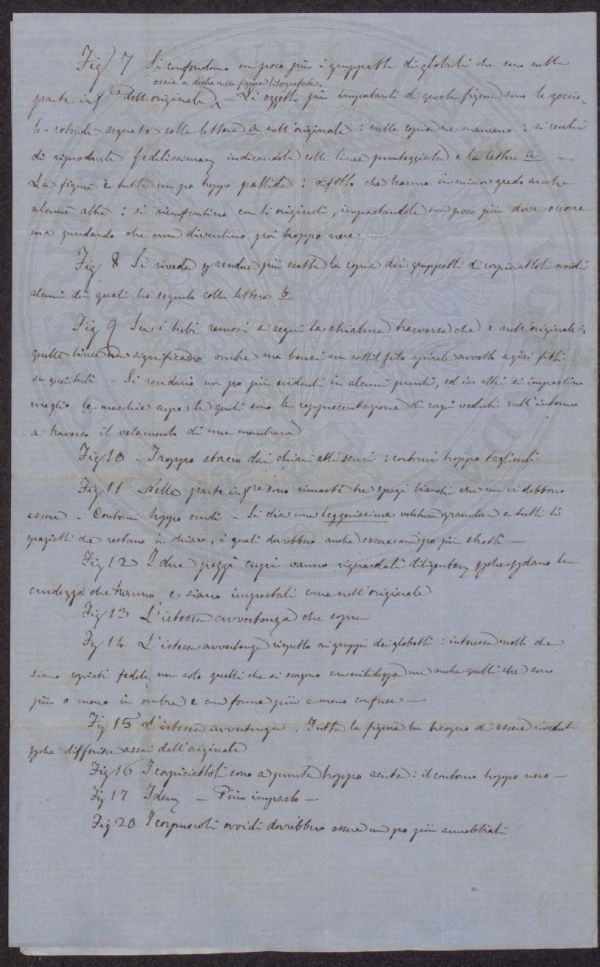 Fig 7 Si confondono un poco più i gruppetti di globuli che sono nella
ossia a destra nella figura litografata
parte inf.re dell'originale. Gli oggetti più importanti di questa figura sono le goccio-
le rotonde segnate colla lettera a nell'originale: nella copia ne mancano: si cerchi
di riprodurle fedelissimam indicandole colla linea punteggiata e la lettera a —
La figura è tutta un po troppo pallida: difetto che hanno in minor grado anche
alcune altre: si confrontino con gli originali, impastandole un poco più dove occorre
ma guardando che non diventino poi troppo nere —
Fig 8 Si riveda p rendere più esatta la copia dei gruppetti di corpicciattoli ovoidi
alcuni di quali ho segnato colla lettera b
Fig 9 Su i tubi si segni la striatura trasversa che è nell'originale:
quelle linee significano ombre ma bensì un sottil filo spirale avvolto a giri fitti
su quei tubi — Si rendano un po più evidenti in alcuni punti, ed in altri si impastino
meglio le macchie cupe le quali sono la rappresentazione di corpi veduti nell'interno
a traverso il velamento di una membrana
Fig 10 — Troppo stacco dai chiari alli scuri: contorni troppo taglienti
Fig 11 — Nella parte inf.re sono rimasti tre spazi bianchi che non vi debbono
essere — Contorni troppo crudi — Si dia una leggerissima velatura a tutti li
spazietti che restano in chiaro, i quali dovrebbero anche essere un po più stretti —
Fig 12 I due pezzi cupi vanno riguardati diligentem pche perdano la
crudezza che hanno e siano impastati come nell'originale
Fig 13 L'istessa avvertenza che sopra
Fig 14 L'istessa avvertenza rispetto ai gruppi dei globetti: interessa molto che
siano copiati fedelm non solo quelli che si scorgono con nitidezza ma anche quelli che sono
più o meno in ombra e con forma più o meno confusa —
Fig 15 L'istessa avvertenza. Tutta la figura ha bisogno di essere riveduta
pche differisce assai dall'originale
Fig 16 I corpicciattoli sono a punta troppo acuta: il contorno troppo nero —
Fig 17 Idem — Più impasto —
Fig 20 I corpuscoli ovoidi dovrebbero essere un po più annebbiati